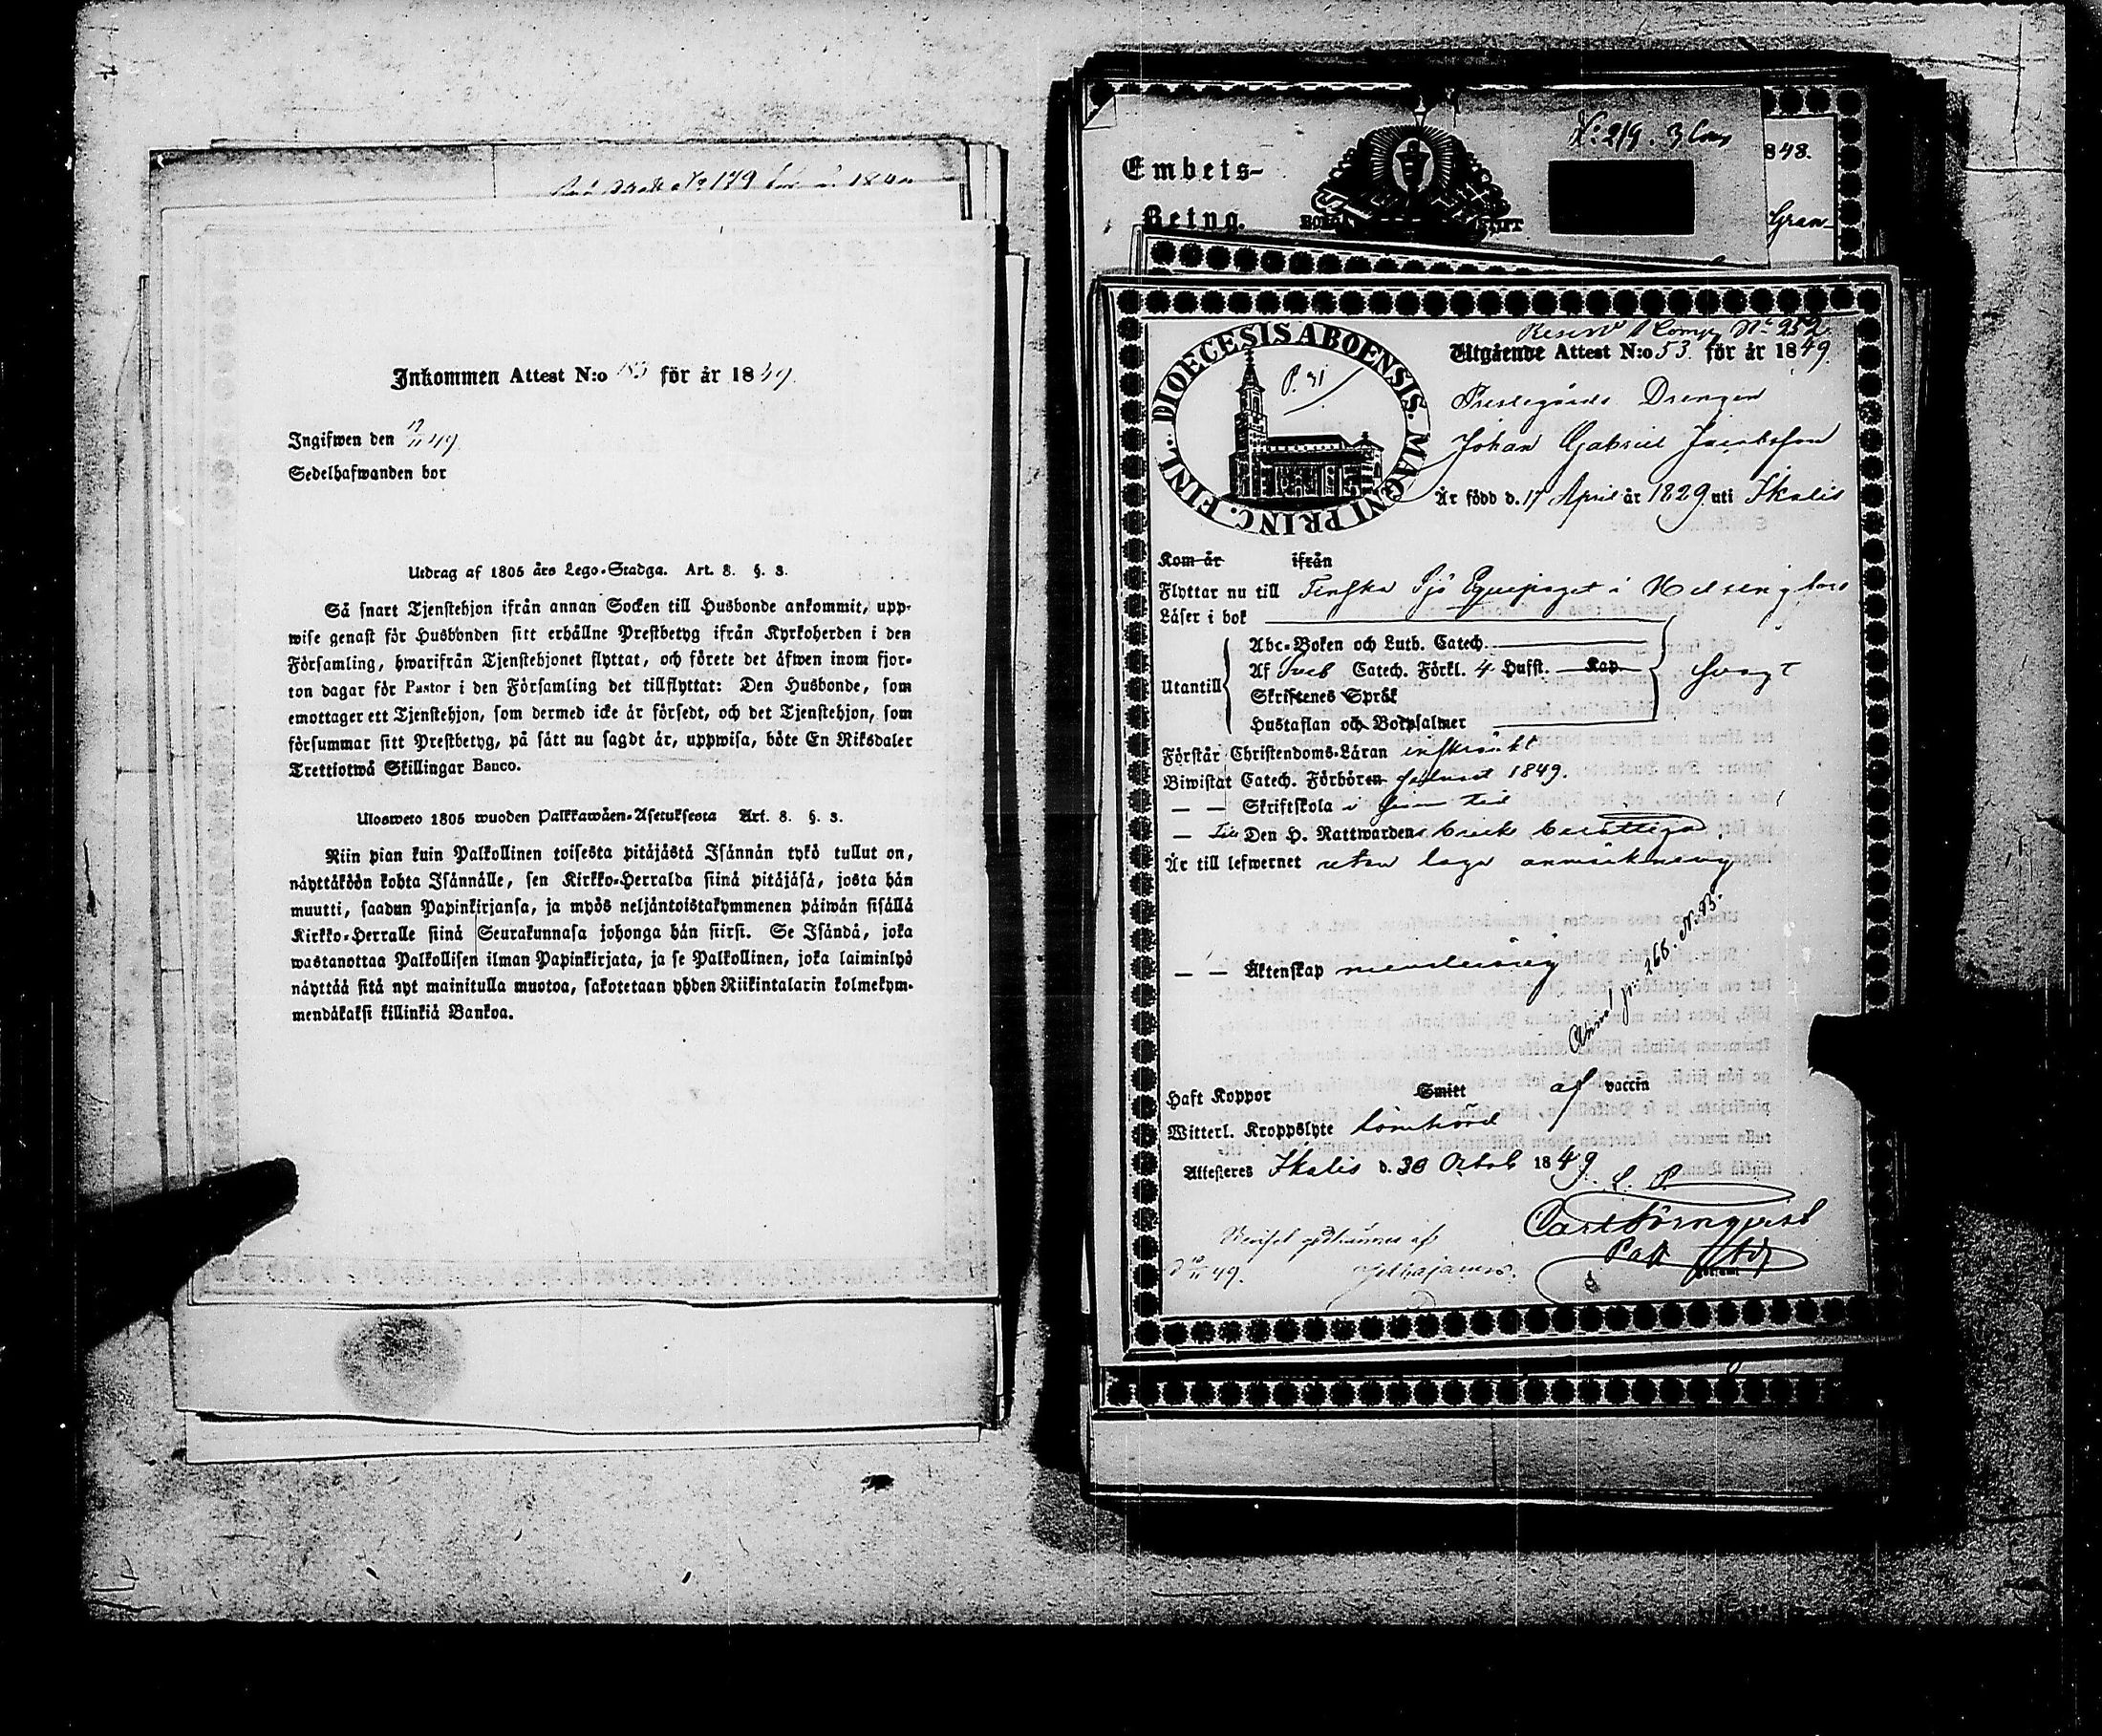 No 179 för år 184
Inkommen Attest N:o 183 för år 1849.
Ingifwen den 12/11 49
Sedelhafwanden bor
Utdrag af 1805 års Lego-Stadga. Art. 8. §. 3.
Så snart Tjenstehjon ifrån annan Socken till Husbonde ankommit, upp-
wise genast för Husbonden sitt erhållne Prestbetyg ifrån Kyrkoherden i den
Församling, hwarifrån Tjenstehjonet flyttat, och förete det äfwen inom fjor-
ton dagar för Pastor i den Församling det tillflyttat: Den Husbonde, som
emottager ett Tjenstehjon, som dermed icke är försedt, och det Tjenstehjon, som
försummar sitt Prestbetyg, på sätt nu sagdt är, uppwisa, böte En Riksdaler
Trettiotwå Skillingar Banco.
Ulosweto 1805 wuoden Palkkawäen-Asetuksesta Art. 8. §. 3.
Niin pian kuin Palkollinen toisesta pitäjästä Isännän tykö tullut on,
näyttäköön kohta Isännälle, sen Kirkko-Herralda siinä pitäjäsä, josta hän
muutti, saadun Papinkirjansa, ja myös neljäntoistakymmenen päiwän sisällä
Kirkko-Herralle siinä Seurakunnasa johonga hän siirsi. Se Isändä, joka
wastanottaa Palkollisen ilman Papinkirjata, ja se Palkollinen, joka laiminlyö
näyttää sitä nyt mainitulla muotoa, sakotetaan yhden Riikintalarin kolmekym-
mendäkaksi killinkiä Bankoa.
Embets-
Betyg.
N: 219. 3 Com
848.
Gran-
Reserv 1 Comp. No 252
DIOECESIS ABOENSIS. MAGNI PRINC. FINL.
P. 31
Utgående Attest N:o 53. för år 1849.
Prestegårds Drengen
Johan Gabriel Jacobsson
Är född d. 17 April år 1829 uti Ikalis
Kom år ifrån
Flyttar nu till Finska Sjö Equipaget i Helsingfors
Läser i bok
Abc-Boken och Luth. Catech.
Utantill Af Sveb Catech. Förkl. 4 Hufst. Kap svagt
Skriftenes Språk
Hustaflan och Botpsalmer
Förstår Christendoms-Läran inskränkt
Biwistat Catech. Förhören sednast 1849.
— — Skriftskola i sinom tid
— Till Den H. Nattwardens bruk berättigad
Är till lefwernet utan laga anmärkning
— — Äktenskap
268. N:o 13.
Haft Koppor Smitt af vaccin
Witterl. Kroppslyte lomhörd
Attesteres Ikalis d. 30 Octob 1849.
L. P.
Carl Törnqvist
Past Adj
49.